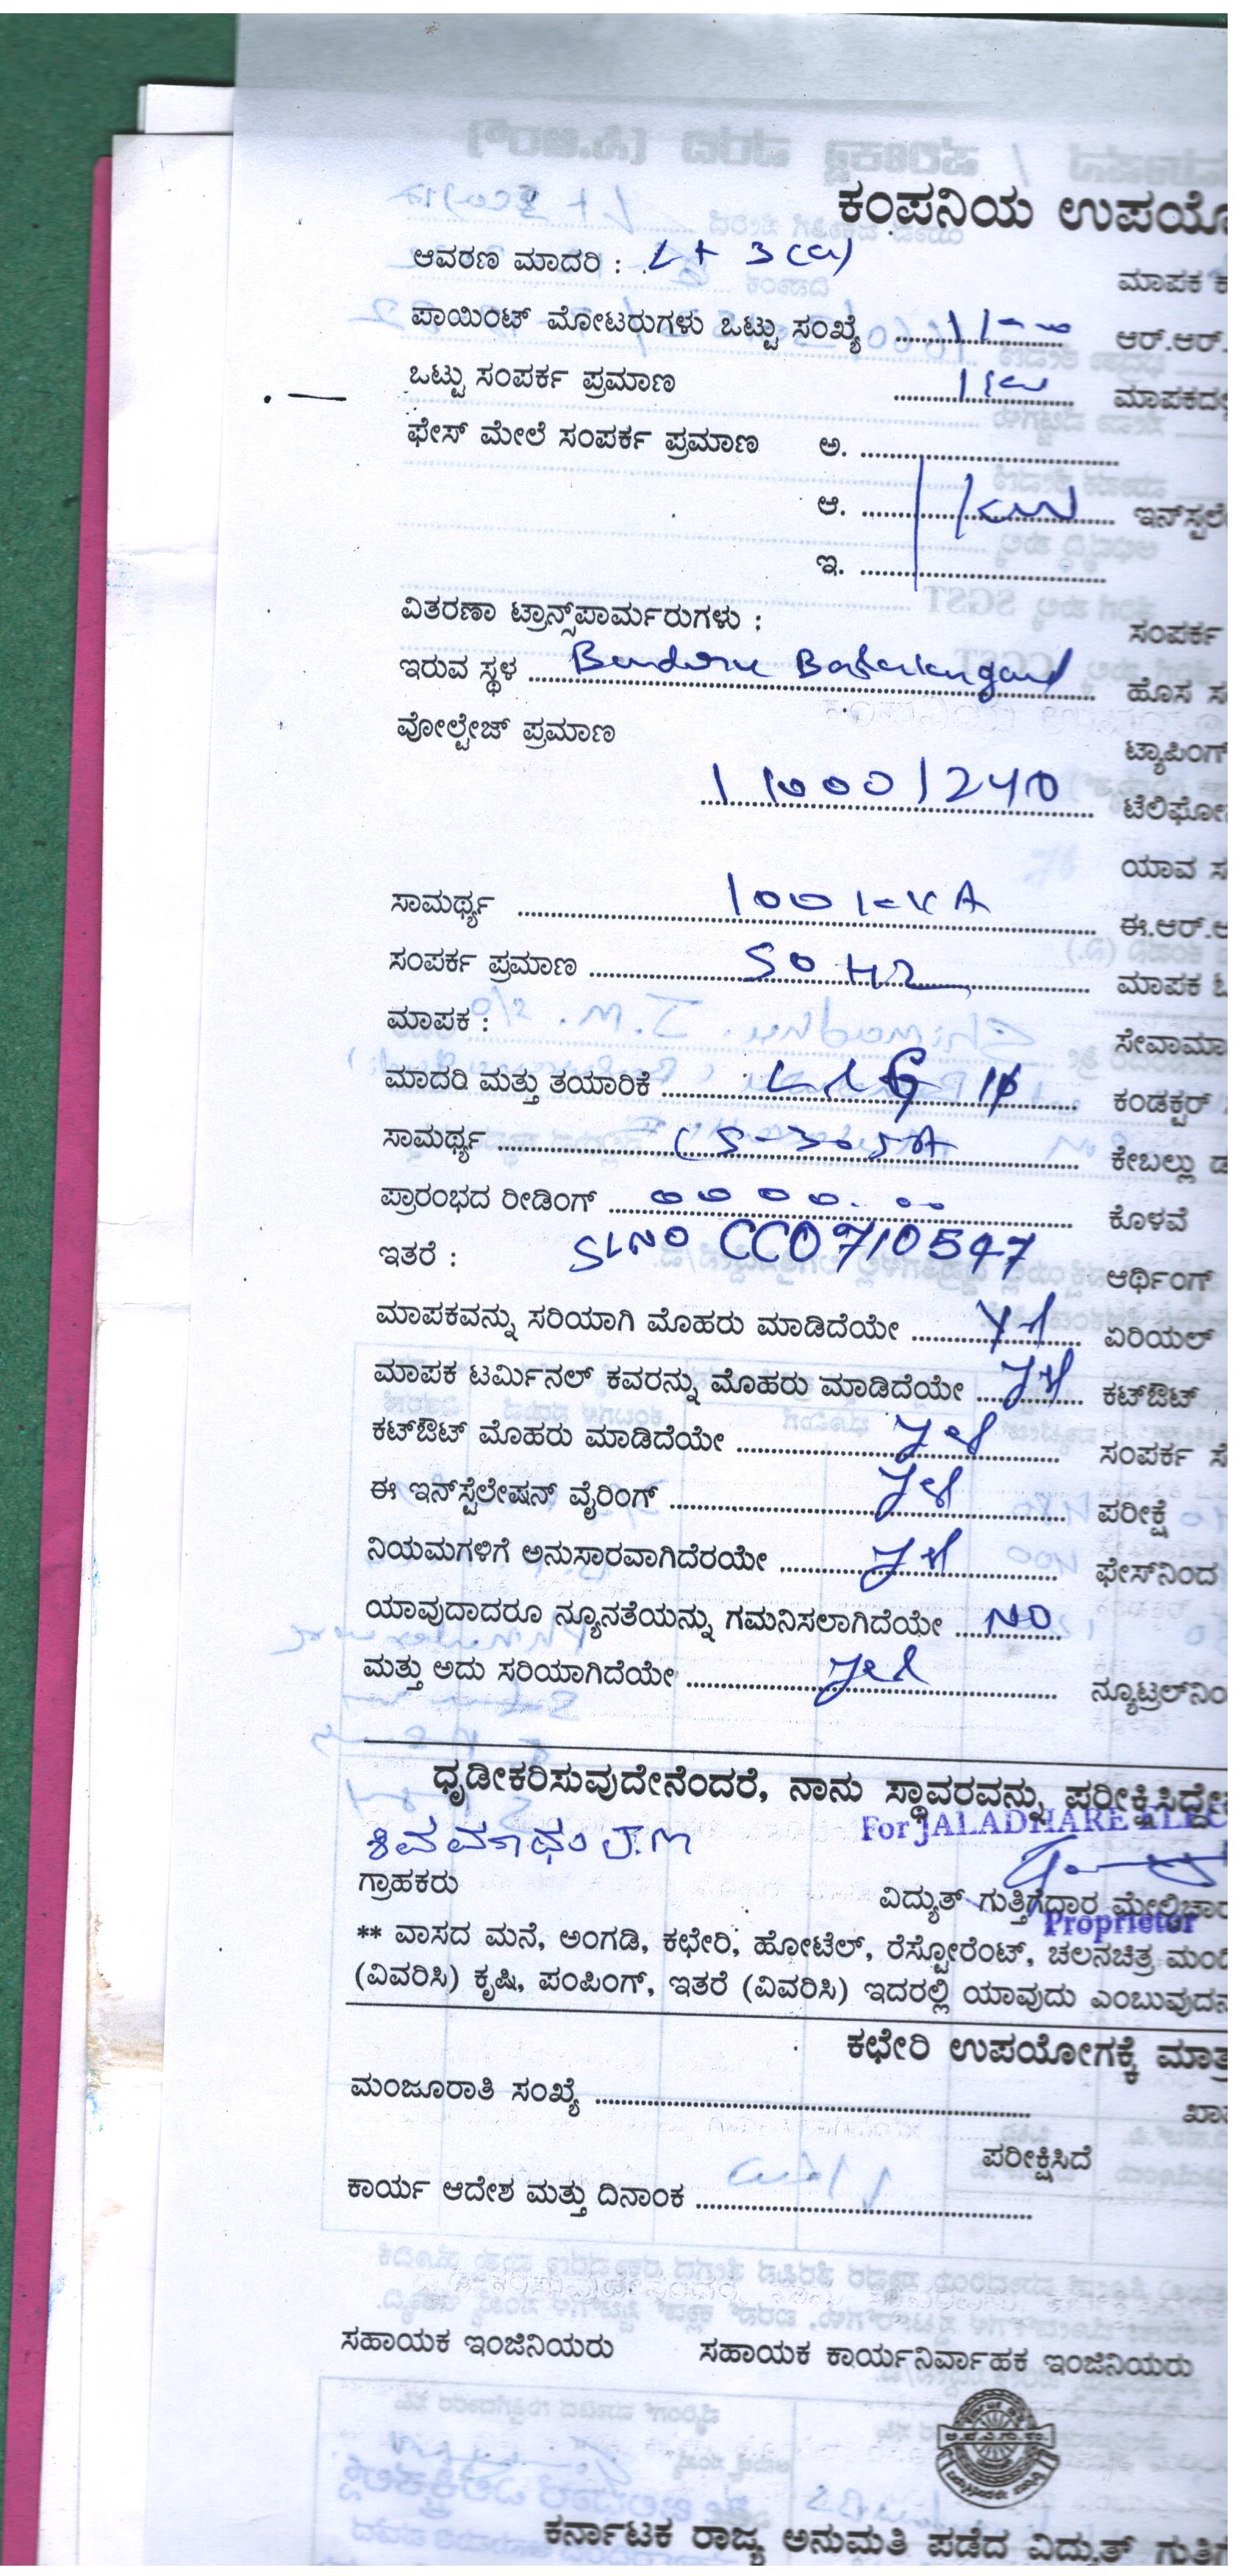 ಕಂಪನಿಯ
ಆವರಣ ಮಾದರಿ : Lt 3(a) ಮಾಪಕ
ಪಾಯಿಂಟ್ ಮೋಟರುಗಳು ಒಟ್ಟು ಸಂಖ್ಯೆ ಆರ್.ಆರ್.
ಒಟ್ಟು ಸಂಪರ್ಕ ಪ್ರಮಾಣ 1kw
ಫೇಸ್ ಮೇಲೆ ಸಂಪರ್ಕ ಪ್ರಮಾಣ ಅ.
ಆ. 1kw
ಇ.
ವಿತರಣಾ ಟ್ರಾನ್ಸ್‌ಪಾರ್ಮರುಗಳು : ಸಂಪರ್ಕ
ಇರುವ ಸ್ಥಳ ಹೊಸ
ವೋಲ್ಟೇಜ್ ಪ್ರಮಾಣ ಟ್ಯಾಪಿಂಗ್
11000/240
ಯಾವ
ಸಾಮರ್ಥ್ಯ 100 KVA ಈ.ಆರ್.
ಸಂಪರ್ಕ ಪ್ರಮಾಣ 50 HZ ಮಾಪಕ
ಮಾಪಕ :
ಮಾದರಿ ಮತ್ತು ತಯಾರಿಕೆ L&G 1φ ಕಂಡಕ್ಟರ್
ಸಾಮರ್ಥ್ಯ ಕೇಬಲ್ಲು
ಪ್ರಾರಂಭದ ರೀಡಿಂಗ್ ಕೊಳವೆ
ಇತರೆ : SLNO CC0710547 ಆರ್ಥಿಂಗ್
ಮಾಪಕವನ್ನು ಸರಿಯಾಗಿ ಮೊಹರು ಮಾಡಿದೆಯೇ yes ಏರಿಯಲ್
ಮಾಪಕ ಟರ್ಮಿನಲ್ ಕವರನ್ನು ಮೊಹರು ಮಾಡಿದೆಯೇ yes ಕಟ್‌ಔಟ್
ಕಟ್‌ಔಟ್ ಮೊಹರು ಮಾಡಿದೆಯೇ yes ಸಂಪರ್ಕ
ಈ ಇನ್‌ಸ್ಟೆಲೇಷನ್ ವೈರಿಂಗ್ yes ಪರೀಕ್ಷೆ
ನಿಯಮಗಳಿಗೆ ಅನುಸಾರವಾಗಿದೆರಯೇ yes ಫೇಸ್‌ನಿಂದ
ಯಾವುದಾದರೂ ನ್ಯೂನತೆಯನ್ನು ಗಮನಿಸಲಾಗಿದೆಯೇ NO
ಮತ್ತು ಅದು ಸರಿಯಾಗಿದೆಯೇ yes
ಧೃಡೀಕರಿಸುವುದೇನೆಂದರೆ, ನಾನು ಸ್ಥಾವರವನ್ನು
For JALADHARE
ಗ್ರಾಹಕರು ವಿದ್ಯುತ್ ಗುತ್ತಿಗೆದಾರ
Proprietor
** ವಾಸದ ಮನೆ, ಅಂಗಡಿ, ಕಛೇರಿ, ಹೋಟೆಲ್, ರೆಸ್ಟೋರೆಂಟ್, ಚಲನಚಿತ್ರ
(ವಿವರಿಸಿ) ಕೃಷಿ, ಪಂಪಿಂಗ್, ಇತರೆ (ವಿವರಿಸಿ) ಇದರಲ್ಲಿ ಯಾವುದು
ಕಛೇರಿ ಉಪಯೋಗಕ್ಕೆ
ಮಂಜೂರಾತಿ ಸಂಖ್ಯೆ
ಪರೀಕ್ಷಿಸಿದೆ
ಕಾರ್ಯ ಆದೇಶ ಮತ್ತು ದಿನಾಂಕ
ಸಹಾಯಕ ಇಂಜಿನಿಯರು ಸಹಾಯಕ ಕಾರ್ಯನಿರ್ವಾಹಕ ಇಂಜಿನಿಯರು
ಕರ್ನಾಟಕ ರಾಜ್ಯ ಅನುಮತಿ ಪಡೆದ ವಿದ್ಯುತ್